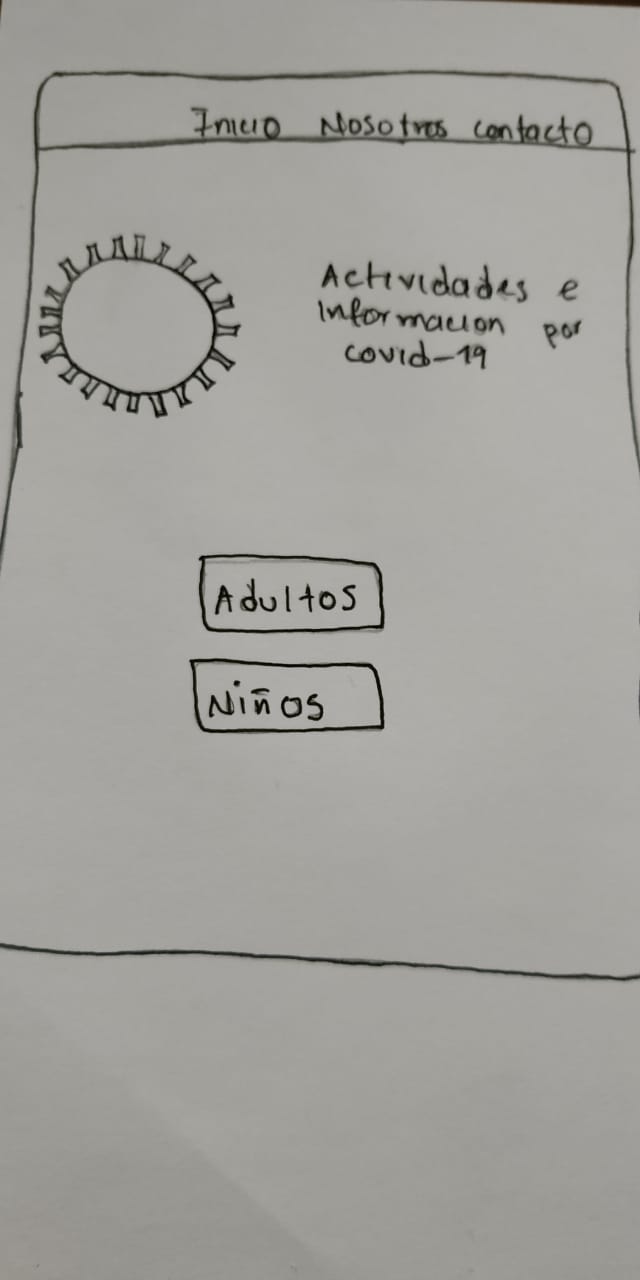 Inicio Nosotros contacto
Actividades e
Informacion por
covid-19
Adultos
Niños